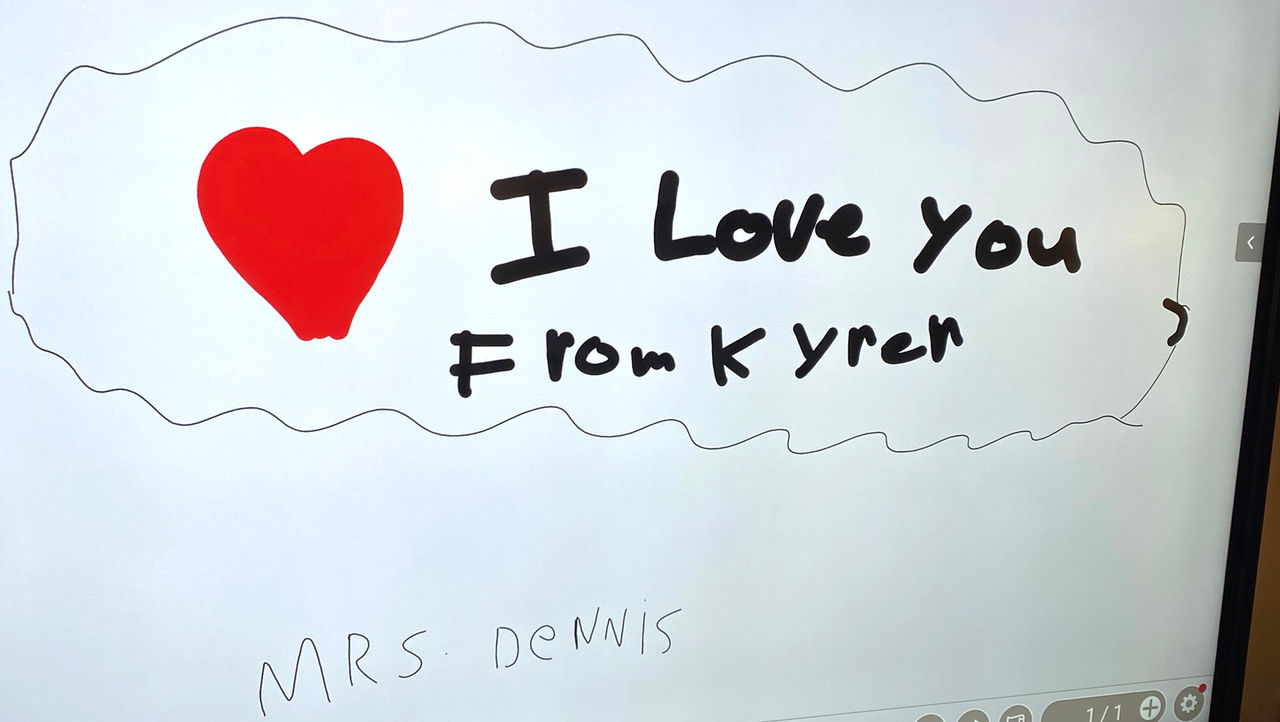 I Love You
From Kyren
MRS. DeNNiS
1/1